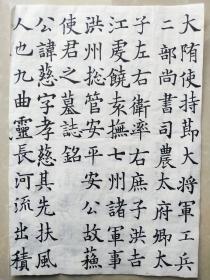 大隋使持莭大将軍工兵
二部尚書司農太府卿太
子左右衛率右庶子洪吉
江虔饒袁撫七州諸軍事
洪州揔管安平安公故蘓
使君之墓誌銘
公諱慈字孝慈其先扶風
人也九曲靈長河流出積